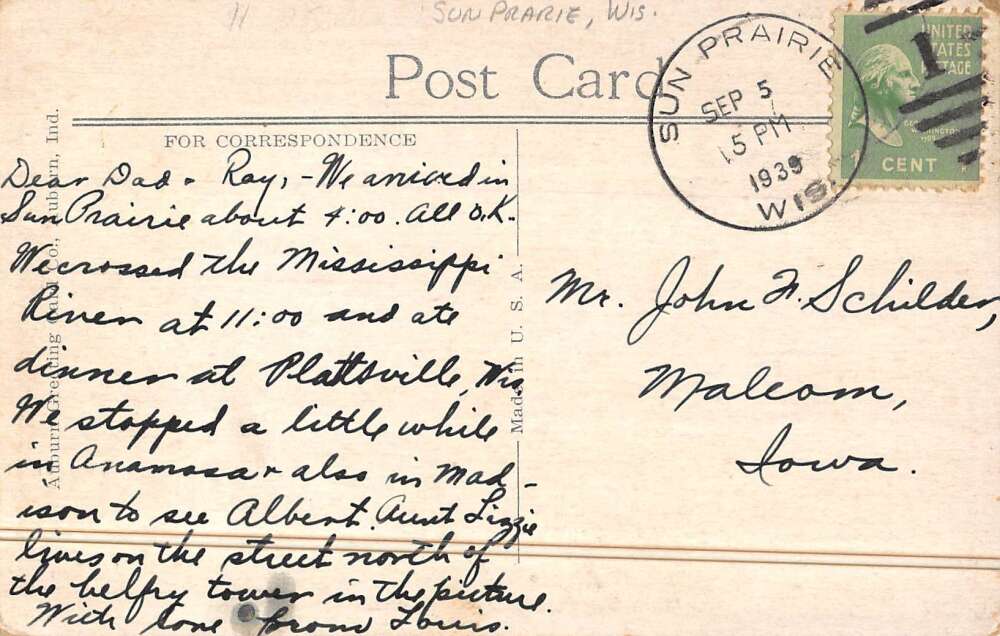 11
SUN PRARIE, WIS.
Post Card
SUN PRAIRIE
SEP 5
5 PM
1939
WIS.
UNITED
STATES
POSTAGE
1
CENT
FOR CORRESPONDENCE
Dear Dad & Ray, - We arrived in
Sun Prairie about 4:00. All O.K.
We crossed the Mississippi
River at 11:00 and ate
dinner at Plattsville, Wis
We stopped a little while
in Anamosa & also in Mad-
ison to see Albert. Aunt Lizzie
lives on the street north of
the belfry tower in the picture.
With love from Louis.
Mr. John F. Schilder,
Malcom,
Iowa.
Auburn Greeting Card Co., Auburn, Ind.
Made in U. S. A.